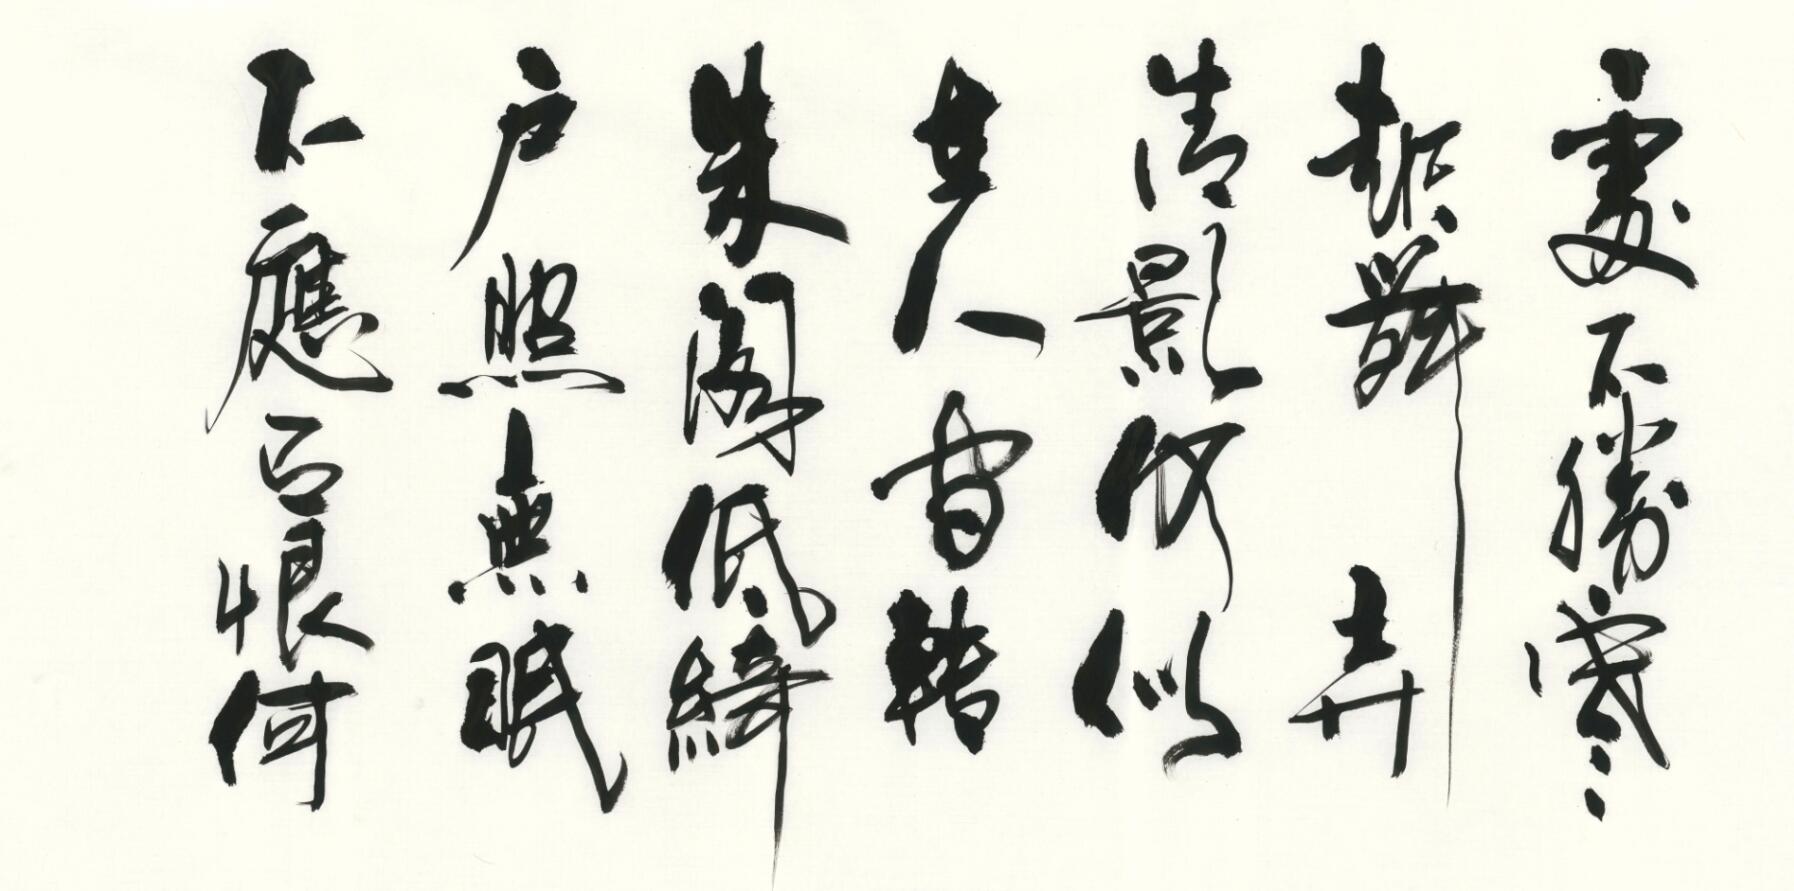 處不勝寒
起舞弄
清影何似
在人間轉
朱閣低綺
戶照無眠
不應有恨何